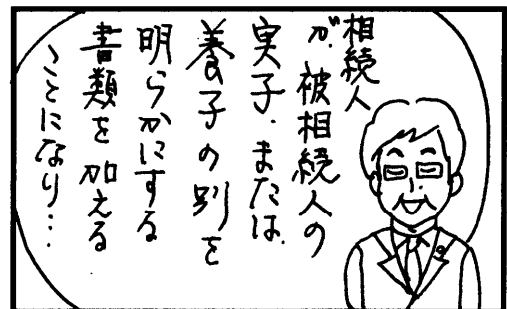 相続人
が、被相続人の
実子、または、
養子の別を
明らかにする
書類を加える
ことになり…